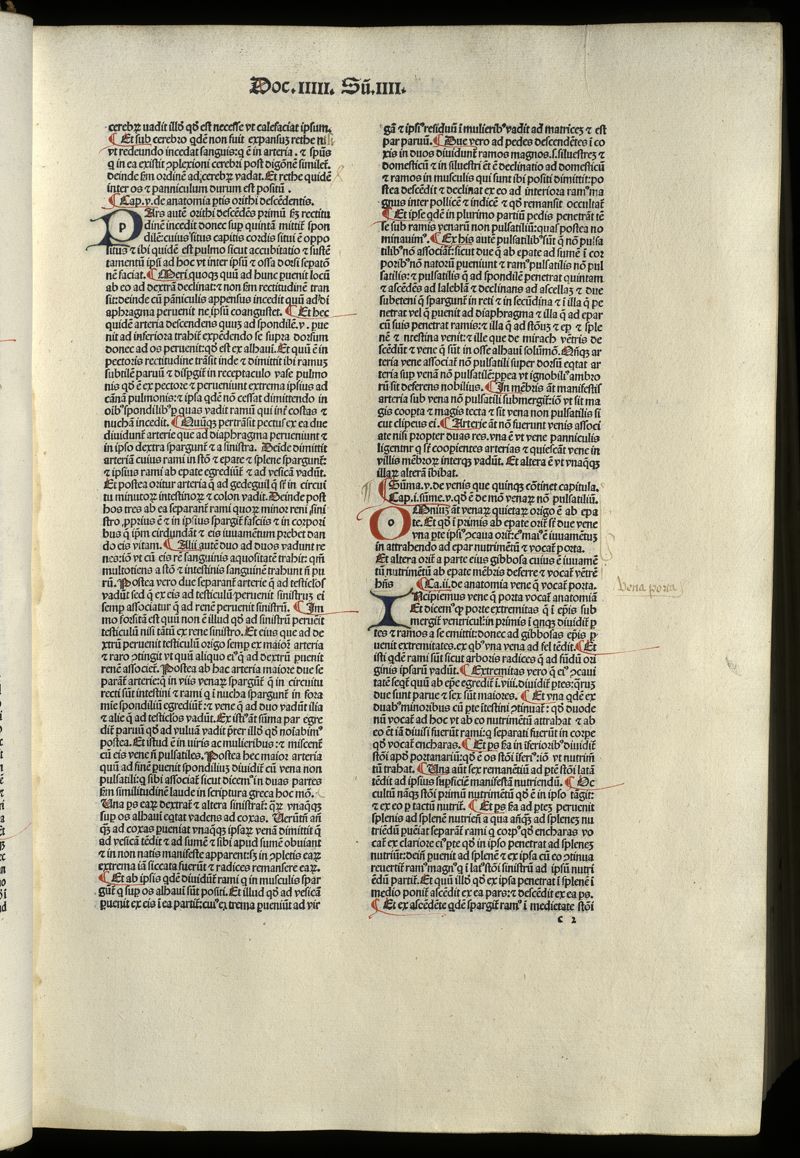 Doc. IIIII. Sũ. IIII.
cerebꝝ uadit illđ qđ est necesse vt calefaciat ipsum.
¶ Et sub cerebro qđẽ non fuit expansuʒ rethe ni
vt redeundo incedat sanguis: q̃ ẽ in arteria. ⁊ spũs
q̃ in ea existit ꝯplexioni cerebri post digõnẽ similet̃.
deinde sm̃ ordinẽ ad cerebꝝ vadat. Et rethe quidẽ
inter os ⁊ panniculum durum est positũ.
¶ Cap. v. de anatomia ptis orithi descẽdentis.
PArs autẽ orithi descẽdẽs primũ sꝫ rectitu
dinẽ incedit donec sup quintã mittit̃ spon
dilẽ: cuius situs capitis cordis situi ẽ oppo
situs ⁊ ibi quidẽ est pulmo sicut accubitatio ⁊ sustẽ
tamentũ ipsi ad hoc vt inter ipsũ ⁊ ossa dorsi sepatõ
nẽ faciat. ¶ Meri quoqꝫ quũ ad hunc puenit locũ
ab eo ad dextrã declinat: ⁊ non sm̃ rectitudinẽ tran
sit: deinde cũ pãniculis appensus incedit quũ ad di
aphragma peruenit ne ipsũ coangustet. ¶ Et hec
quidẽ arteria descendens quuʒ ad spondilẽ. v. pue
nit ad inferiora trahit̃ expẽdendo se supra dorsum
donec ad os peruenit: qđ est ex alhaui. Et quũ ẽ in
pectoris rectitudine trãsit inde ⁊ dimittit ibi ramuʒ
subtilẽ paruũ ⁊ dispgit̃ in receptaculo vase pulmo
nis qđ ẽ ex pectore ⁊ perueniunt extrema ipsius ad
cãnã pulmonis: ⁊ ipsa qđẽ nõ cessat dimittendo in
oib᷒ spondilib᷒ p quas vadit ramũ qui int̃ costas ⁊
nuchã incedit. ¶ Quũqꝫ pertrãsit pectus ex ea due
diuidunt̃ arterie que ad diaphragma perueniunt ⁊
in ipso dextra spargunt̃ ⁊ a sinistra. Deĩde dimittit
arteriã cuius rami in stõ ⁊ epate ⁊ splene spargunt̃:
⁊ ipsius rami ab epate egrediũt̃ ⁊ ad vesicã vadũt.
Et postea oritur arteria q̃ ad gedeguil q̃ st̃ in circui
tu minutoꝝ intestinoꝝ ⁊ colon vadit. Deinde post
hos tres ab ea separant̃ rami quoꝝ minor reni sini
stro ꝓprius ẽ ⁊ in ipsius spargit̃ fasciis ⁊ in corpori
bus q̃ ipm̃ cirdundãt ⁊ eis iuuamẽtum prebet dan
do eis vitam. ¶ Alii autẽ duo ad duos vadunt re
nes: iõ vt cũ eis rẽ sanguinis aquositatẽ trahit: qm̃
multotiens a stõ ⁊ intestinis sanguinẽ trahunt ñ pu
rũ. Postea vero due separant̃ arterie q̃ ad testiclos
vadũt sed q̃ ex eis ad testiculũ peruenit sinistruʒ ei
semp associatur q̃ ad renẽ peruenit sinistrũ. ¶ Im
mo forsitã est quũ non ẽ illud qđ ad sinistrũ peruẽit
testiculũ nisi tãtũ ex rene sinistro. Et eius que ad de
xtrũ peruenit testiculũ origo semp ex maiori arteria
⁊ raro ꝯtingit vt quũ aliquo ei᷒ q̃ ad dextrũ puenit
renẽ associet̃. Postea ab hac arteria maiore due se
parãt̃ arterie: q̃ in viis venaꝝ spargũt̃ q̃ in circuitu
recti sũt intestini ⁊ rami q̃ i nucha spargunt̃ in fora
mie spondiliũ egrediũt̃: ⁊ vene q̃ ad duo vadũt ilia
⁊ alie q̃ ad testiclos vadũt. Ex istis ãt sũma par egre
dit̃ paruũ qđ ad vuluã vadit p̃ter illđ qđ noĩabim᷒
postea. Et istud ẽ in uiris ac mulieribus: ⁊ miscent̃
cũ eis vene ñ pulsatiles. Postea hec maior arteria
quũ ad finẽ puenit spondiliuʒ diuidit̃ cũ vena non
pulsatili: q̃ sibi associat̃ sicut dicem᷒ in duas partes
sm̃ similitudinẽ laude in scriptura greca hoc mõ.
Una ps eaꝝ dextrat̃ ⁊ altera sinistrat̃: q̃ꝝ vnaqꝫqꝫ
sup os alhaui eq̃tat vadens ad coxas. Uerũtñ añ
q̃ꝫ ad coxas pueniat vnaq̃qꝫ ipsaꝝ venã dimittit q̃
ad vesicã tẽdit ⁊ ad sumẽ ⁊ sibi apud sumẽ obuiant
⁊ in non natis manifeste apparent: sꝫ in ꝯpletis eaꝝ
extrema iã siccata fuerũt ⁊ radices remansere eaꝝ.
¶ Et ab ipsis qđẽ diuidũt̃ rami q̃ in musculis spar
gũt̃ q̃ sup os alhaui sũt positi. Et illud qđ ad vesicã
puenit ex eis i ea partit̃: cui᷒ extrema pueniũt ad vir
gã ⁊ ipsi᷒ residuũ i mulierib᷒ vadit ad matricẽ ⁊ est
par paruũ. ¶ Due vero ad pedes descendẽtes i co
xis in duos diuidunt̃ ramos magnos. s. siluestreʒ ⁊
domesticũ ⁊ in siluestri et ẽ declinatio ad domesticũ
⁊ ramos in musculis qui sunt ibi positi dimittit: po
stea descẽdit ⁊ declinat ex eo ad interiora ram᷒ ma
gnus inter pollicẽ ⁊ indicẽ ⁊ qđ remansit occultat̃
¶ Et ipse qđẽ in plurimo partiũ pedis penetrãt tẽ
se sub ramis venarũ non pulsatiliũ: quas postea no
minauim᷒. ¶ Ex his autẽ pulsatilib᷒ sũt q̃ nõ pulsa
tilib᷒ nõ associat̃: sicut due q̃ ab epate ad sumẽ i cor
porib᷒ nõ natorũ pueniunt ⁊ ram᷒ pulsatilis nõ pul
satilis: ⁊ pulsatilis q̃ ad spondilẽ penetrat quintam
⁊ ascẽdẽs ad lalebã ⁊ declinans ad ascellaʒ ⁊ due
subeteni q̃ spargunt̃ in reti ⁊ in secũdina ⁊ i illa q̃ pe
netrat vel q̃ puenit ad diaphragma ⁊ illa q̃ ad epar
cũ suis penetrat ramis: ⁊ illa q̃ ad stõuʒ ⁊ ep̃ ⁊ sple
nẽ ⁊ ĩtestina venit: ⁊ ille que de mirach vẽtris de
scẽdũt ⁊ vene q̃ sũt in osse alhaui solũmõ. Nũqꝫ ar
teria vene associat̃ nõ pulsatili super dorsũ eq̃tat ar
teria sup venã nõ pulsatilẽ: ꝓpea vt ignobili᷒ ambro
rũ sit deferens nobilius. ¶ In mẽbris ãt manifestis
arteria sub vena nõ pulsatili submergit̃: iõ vt sit ma
gis coopta ⁊ magis tecta ⁊ sit vena non pulsatilis si
cut clipeus ei. ¶ Arterie ãt nõ fuerunt venis associ
ate nisi propter duas res. vna ẽ vt vene panniculis
ligentur q̃ st̃ coopientes arterias ⁊ quiescãt vene in
villis mẽbroꝝ interqꝫ vadũt. Et altera ẽ vt vnaq̃qꝫ
illaꝝ alterã ibibat.
¶ Sũma. v. de venis que quinqꝫ cõtinet capitula.
¶ Cap. i. sũme. v. qđ ẽ de mõ venaꝝ nõ pulsatiliũ.
OMniuʒ ãt venaꝝ quietaꝝ origo ẽ ab epa
te. Et qđ i primis ab epate orit̃ st̃ due vene
vna pte ipsi᷒ ꝯcaua orit̃: ei᷒ mai᷒ ẽ iuuamẽtuʒ
in attrahendo ad epar nutrimẽtũ ⁊ vocat̃ porta.
Et altera orit̃ a parte eius gibbosa cuius ẽ iuuamẽ
tũ nutrimẽtũ ab epate mẽbris deferre ⁊ vocat̃ vẽtrẽ
hñs ¶ Ca. ii. de anatomia vene q̃ vocat̃ porta.
INcipiemus vene q̃ porta vocat̃ anatomiã
Et dicem᷒ ꝙ porte extremitas q̃ i ep̃is sub
mergit̃ ventricul᷒: in primis i q̃nqꝫ diuidit̃ p
tes ⁊ ramos a se emittit: donec ad gibbosas ep̃is p
uenit extremitates. ex qb᷒ vna vena ad fel tẽdit. ¶ Et
isti qđẽ rami sũt sicut arboris radices q̃ ad fũdũ ori
ginis ipsarũ vadũt. ¶ Extremitas vero q̃ ei᷒ ꝯcaui
tatẽ seqt̃ quũ ab ep̃e egredit̃ i. viii. diuidit̃ ptes: q̃ruʒ
due sunt parue ⁊ sex sũt maiores. ¶ Et vna qđẽ ex
duab᷒ minoribus cũ pte ĩtestini ꝯtinuat̃: qđ duode
nũ vocat̃ ad hoc vt ab eo nutrimẽtũ attrahat ⁊ ab
eo ẽt iã diuisi fuerũt rami: q̃ separati fuerũt in corpe
qđ vocat̃ encharas. ¶ Et ps sc̃da in iferiorib᷒ diuidit̃
stõi apđ portanariũ: qđ ẽ os stõi iferi᷒: iõ vt nutrim̃
tũ trahat. ¶ Una aũt sex remanẽtiũ ad ptẽ stõi latã
tẽdit ad ipsius supficiẽ manifestã nutriendũ. ¶ Oc
cultũ nãqꝫ stõi primũ nutrimẽtũ qđ ẽ in ipso tãgit:
⁊ ex eo p tactũ nutrit̃. ¶ Et ps sc̃da ad pteʒ peruenit
splenis ad splenẽ nutriẽdũ a qua añqꝫ ad spleneʒ nu
triẽdũ pueniat separãt̃ rami q̃ corp᷒ qđ encharas vo
cat̃ ex clariore ei᷒ pte qđ in ipso penetrat ad spleneʒ
nutriũt: deiñ puenit ad splenẽ ⁊ ex ipsa cũ eo ꝯtinua
reuertit̃ ram᷒ magn᷒ q̃ i lat᷒ stõi sinistrũ ad ipsũ nutri
ẽdũ partit̃. Et quũ illđ qđ ex ipsa penetrat i splenẽ i
medio ponit̃ ascẽdit ex ea pars: ⁊ descẽdit ex ea ps.
¶ Et ex ascẽdẽte qđẽ spargit̃ ram᷒ i medietate stõi
c 2
Vena porta